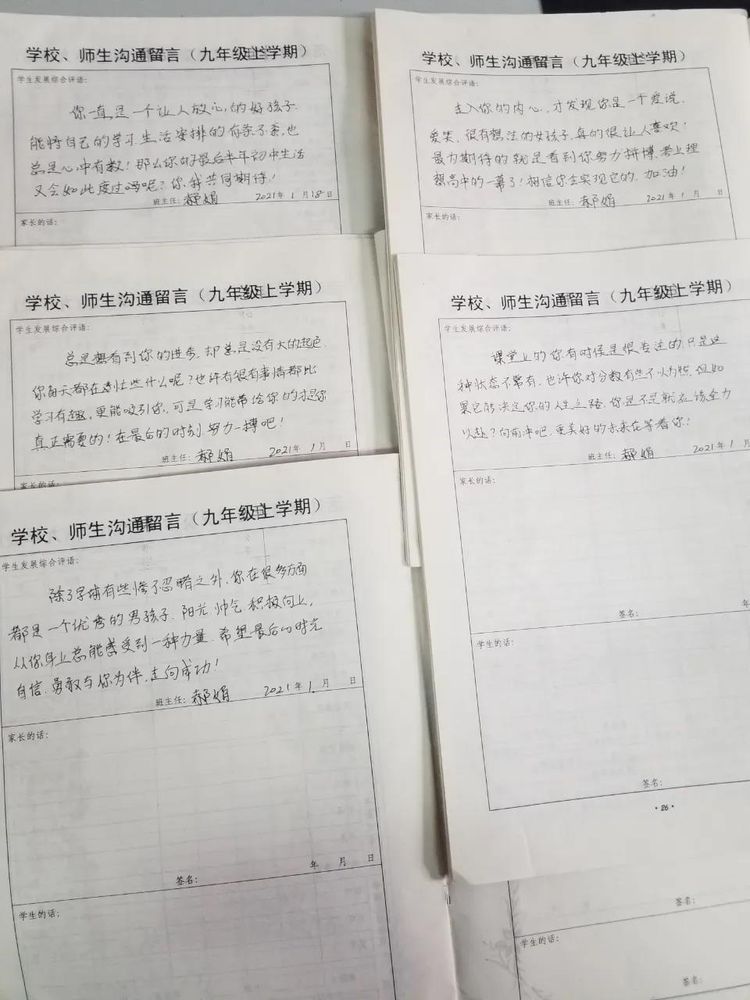 学校、师生沟通留言（九年级上学期）
学生发展综合评语：
你一直是一个让人放心的好孩子.
能将自己的学习.生活安排的有条不紊,也
总是心中有数！那么你的最后半年初中生活
又会如此度过吗呢？你.我共同期待！
班主任：郝娟 2021年 1月18日
家长的话：
学校、师生沟通留言（九年级上学期）
学生发展综合评语：
走入你的内心，才发现你是一个爱说.
爱笑.很有想法的女孩子.真的很让人喜欢！
最为期待的就是看到你努力拼搏.考上理
想高中的一幕了！相信你会实现它的.加油！
班主任：郝娟 2021年 1月 日
家长的话：
学校、师生沟通留言（九年级上学期）
学生发展综合评语：
总是想看到你的进步.却总是没有大的起色.
你每天都在想些什么呢？也许有很有事情都比
学习有趣,更能吸引你.可是学习能带给你的才是你
真正需要的！在最后的时刻.努力一搏吧！
班主任：郝娟 2021年 1月 日
家长的话：
学校、师生沟通留言（九年级上学期）
学生发展综合评语：
课堂上的你有时候是很专注的.只是这
种状态不常有.也许你对分数有些不以为然.但如
果它能决定你的人生之路.你是不是就应该全力
以赴？向前冲吧.更美好的未来在等着你！
班主任：郝娟 2021年 1月 日
家长的话：
签名： 年
学生的话：
签名：
·26·
学校、师生沟通留言（九年级上学期）
学生发展综合评语：
除了字迹有些惨不忍睹之外.你在很多方面
都是一个优秀的男孩子.阳光 帅气 积极向上.
从你身上总能感受到一种力量.希望最后的时光
自信.勇敢与你为伴.走向成功！
班主任：郝娟 2021年 1月 日
家长的话：
签名： 年 月 日
学生的话：
签名：
学生的话：
签名：